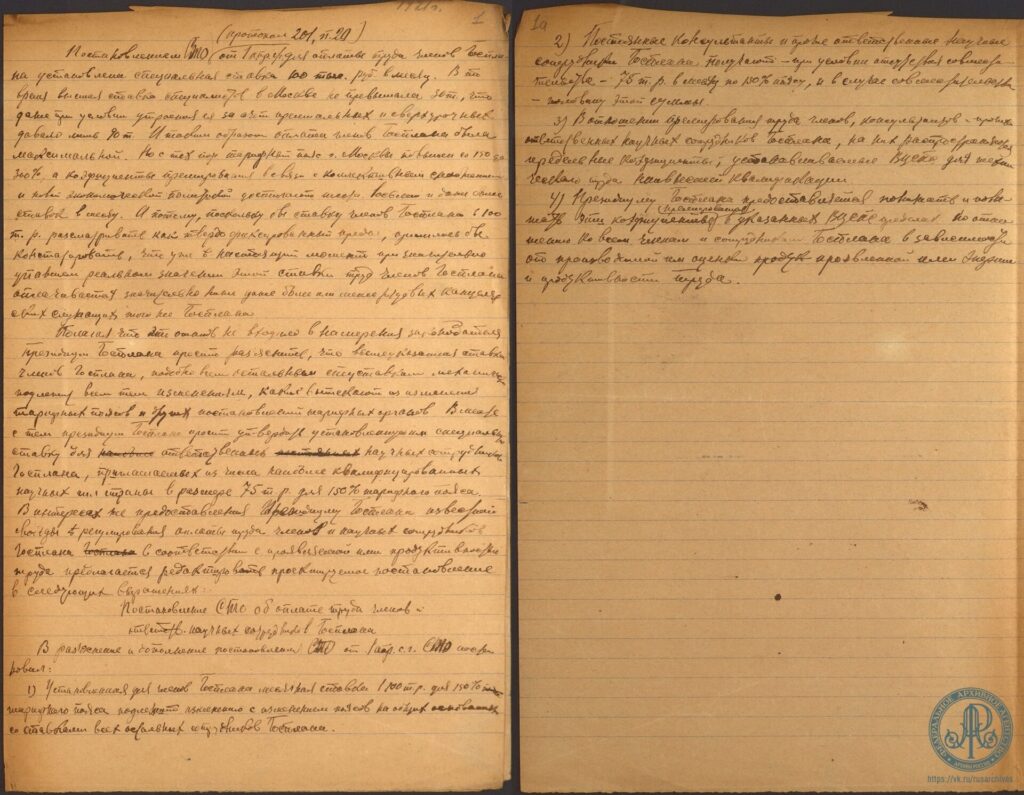 1921г.
1
(протокол 201, п. 20)
Постановлением СТО от 1 апр. для оплаты труда членов Госпла-
на установлена специальная ставка 100 тыс. руб. в месяц. В то
время высшая ставка специалистов в Москве не превышала 30 т., что
даже при условии утроения ее за счет премиальных и сверхурочных
давало лишь 90 т. И таким образом оплата членов Госплана была
максимальной. Но с тех пор тарифный пояс г. Москвы повышен со 150 до
300%, а коэффициенты премирования в связи с коллективным снабжением
и новой экономической политикой достигают
ставок в месяц. И потому, поскольку бы ставку членов Госплана в 100
т. р. рассматривать как твердо фиксированный предел, пришлось бы
констатировать, что уже в настоящий момент при значительно
упавшем реальном значении этой ставки труд членов Госплана
оплачивается значительно ниже даже более или менее рядовых канцеляр-
ских служащих того же Госплана.
Полагая, что это отнюдь не входило в намерения законодателя
президиум Госплана просит разъяснить, что вышеуказанная ставка
членов Госплана, подобно всем остальным спецставкам
подлежит всем тем изменениям, какие вытекают из изменений
тарифных поясов и других постановлений тарифных органов. Вместе
с тем президиум Госплана просит утвердить установленную им специальную
ставку для ответственных научных сотрудников
Госплана, приглашаемых из числа наиболее квалифицированных
научных сил страны в размере 75 т. р. для 150% тарифного пояса.
В интересах же предоставления Президиуму Госплана известной
свободы регулирования оплаты труда членов и научных сотрудников
Госплана в соответствии с проявленной ими продуктивностью
труда предлагается редактировать проектируемое постановление
в следующих выражениях:
Постановление СТО об оплате труда членов и
ответств. научных сотрудников Госплана
В разъяснение и дополнение постановления СТО от 1 апр. с.г. СТО постано-
вил:
1) Установленная для членов Госплана месячная ставка в 100 т. р. для 150%
тарифного пояса подлежит изменению с изменением поясов на общих основаниях
со ставками всех остальных сотрудников Госплана.
1а
2) Постоянные консультанты и прочие ответственные научные
сотрудники Госплана получают при условии отсутствия совмести-
тельства – 75 т. р. в месяц по 150% поясу, и в случае совместительства
– половину этой суммы
3) В отношении премирования труда членов, консультантов и прочих
ответственных научных сотрудников Госплана, на них распространяются
коэффициенты, устанавливаемые ВЦСПС для
труда наивысшей квалификации
4) Президиуму Госплана предоставляется понижать и повы-
шать эти коэффициенты премирования в указанных ВЦСПС пределах по отно-
шению ко всем членам и сотрудникам Госплана в зависимости
от производимой им оценки проявленной ими энергии
и продуктивности труда.
ФЕДЕРАЛЬНОЕ АРХИВНОЕ АГЕНТСТВО
АРХИВЫ РОССИИ
https://vk.ru/rusarchives